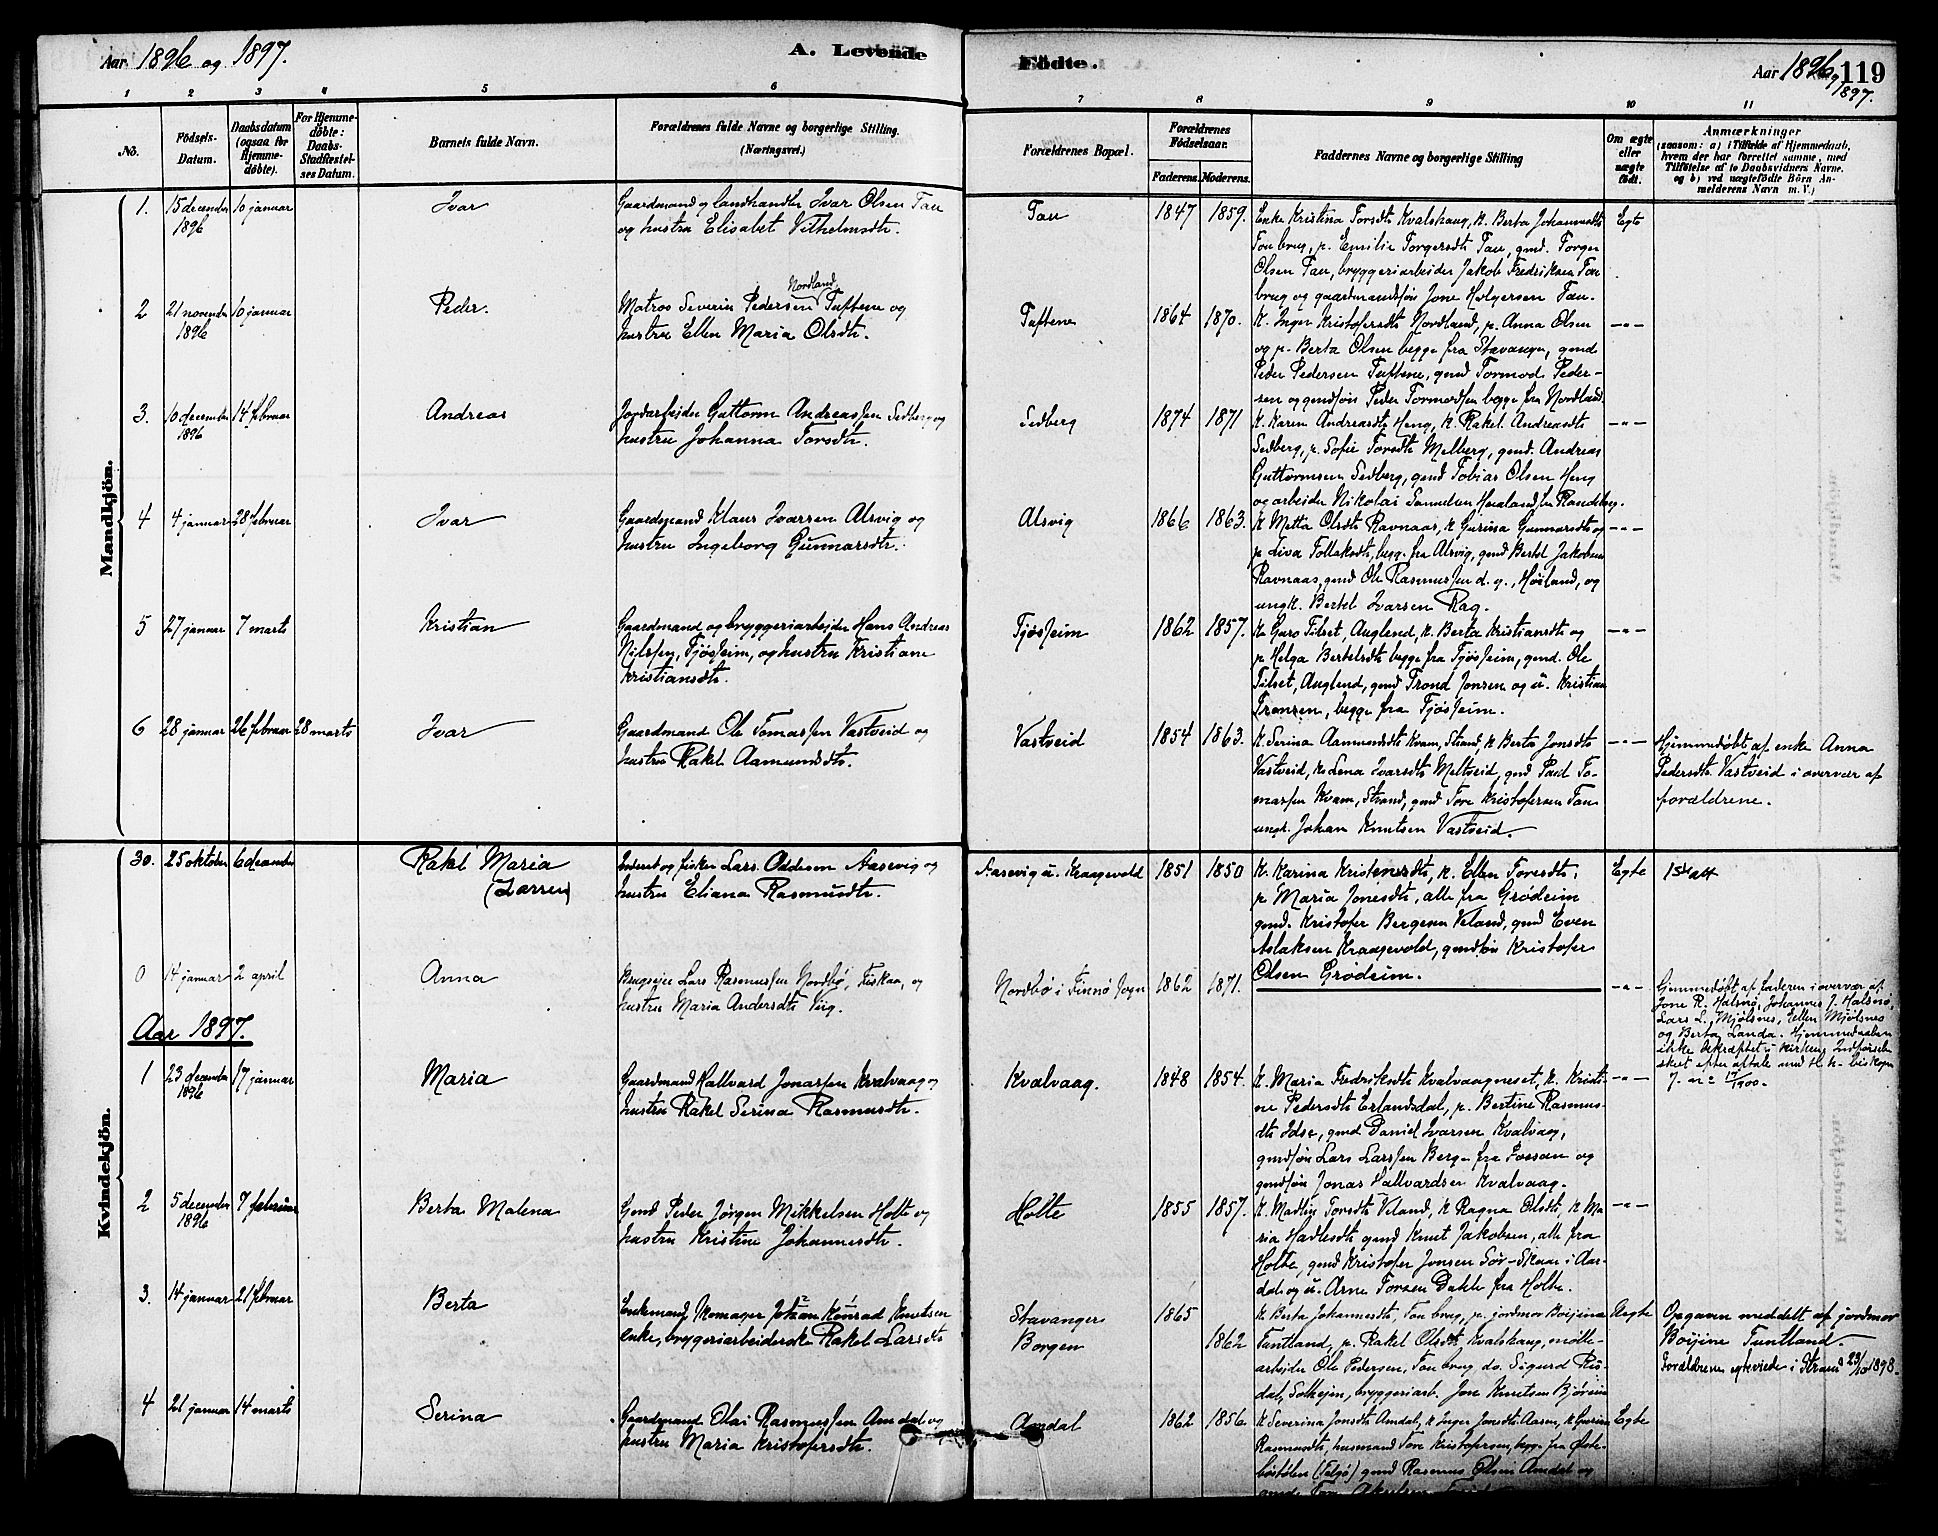 Aar 1896 og 1897.
A. Levende
Födte.
Aar 1896 og 1897.
119
1 2 3 4 5 6 7 8 9 10 11
No.
Födsels-Datum.
Daabsdatum (ogsaa for Hjemmedöbte).
For Hjemmedöbte: Daabs-Stadfæstelses Datum.
Barnets fulde Navn.
Forældrenes fulde Navne og borgerlige Stilling. (Næringsvei.)
Forældrenes Bopæl.
Forældrenes Födselsaar.
Faderens. Moderens.
Faddernes Navne og borgerlige Stilling
Om ægte eller uægte födt.
Anmærkninger
(saasom: a) i Tilfælde af Hjemmedaab, hvem der har forrettet samme, med Tilföielse af to Daabsvidners Navne. og b) ved uægtefödte Börn Anmelderens Navn m. V.)
Mandkjön.
1. 15 december 1896 10 januar Ivar
Gaardmand og landhandler Ivar Olsen Tau
og hustru Elisabet Vilhelmsdtr.
Tau 1847 1859.
Enke Kristina Torsdtr Kvalshaug, k. Berta Johannesdtr
Tou brug, p. Emilie Torgersdtr Tau, gmd. Torger
Olsen Tau, bryggeriarbeider Jakob Fredriksen Tou
brug og gaardmandsføn Jone Holgersen Tau.
Egte
2 21 november 1896 10 januar Peder.
Matros Severin Pedersen Nordland, Tuftene og
hustru Ellen Maria Olsdtr.
Tuftene 1864 1870.
K. Inger Kristofersdtr Nordland, p. Anna Olsen
og p. Berta Olsen begge fra Stavanger, gmd
Peder Pedersen Tuftene, gmd Tormod Peder-
sen og gmdsøn Peder Tormodsen begge fra Nordland
-"-
3. 10 december 1896 14 februar Andreas
Jordarbeider Guttorm Andreassen Sedberg og
hustru Johanna Torsdtr.
Sedberg 1874 1871
K. Karen Andreasdtr Heng, K. Rakel Andreasdtr
Sedberg, p. Sofie Torsdtr Melberg, gmd. Andreas
Guttormsen Sedberg, gmd Tobias Olsen Heng
og arbeider Nikolai Samuelsen Haaland, fra Randeberg.
-"-
4 4 januar 28 februar Ivar
Gaardmand Klaus Ivarsen Alsvig og
hustru Ingeborg Gunnarsdtr.
Alsvig 1866 1863.
K. Metta Olsdtr Ravnaas, K Gurina Gunnarsdtr og
p. Liva Tollaksdtr, begge fra Alsvig, gmd Bertel Jakobsen
Ravnaas, gmd Ole Rasmussen d. y., Høiland, og
ungk. Bertel Ivarsen Rag.
-"-
5 27 januar 7 marts Kristian
Gaardmand og bryggeriarbeider Hans Andreas
Nilssen, Tjøsseim, og hustru Kristiane
Kristiansdtr.
Tjøsseim 1862 1857.
K Guro Tilset, Auglend, K. Berta Kristiansdtr og
p Helga Bertelsdtr begge fra Tjøsseim, gmd. Ole
Tilset, Auglend, gmd Trond Jonsen og u. Kristian
Tronsen, begge fra Tjøsseim.
-"-
6 28 januar 26 februar 28 marts Ivar
Gaardmand Ole Tomassen Vastveid og
hustru Rakel Aamundsdtr.
Vastveid 1854 1863.
K. Serina Aamundsdtr Kvam, Strand, K Berta Jonsdtr
Vastveid, K. Lena Ivarsdtr Meltveid, gmd Paul To-
massen Kvam, Strand, gmd Tore Kristofersen Tau
ungk. Johan Knutsen Vastveid.
-"-
Hjemmedøbt af enke Anna
Pedersdtr. Vastveid i overvær af
forældrene.
Kvindekjön.
30. 25 oktober 6 december Rakel Maria
(Larsen)
Inderst og fisker Lars Oddsom Aasevig og
hustru Eliana Rasmusdtr.
Aasevig u. Kraagevold 1851 1850
K. Karina Kristensdtr, K. Ellen Toresdtr,
p Maria Jonesdtr, alle fra Grødeim
gmd. Kristofer Bergesen Veland, gmd Even
Aslaksen Kraagevold, gmdsøn Kristofer
Olsen Grødeim.
Egte
0 14 januar 2 april Anna
Brugseier Lars Rasmussen Nordbø, Fiskaa, og
hustru Maria Andersdtr Vig.
Nordbø i Finnø sogn 1862 1871.
-"-
Hjemmedøbt af faderen i overvær af
Jone R. Halsnø, Johannes J. Halsnø,
Lars L. Mjølsnes, Ellen Mjølsnes
og Berta Landa. Hjemmedaaben
ikke bekræftet i kirken. Indførelse
skeet efter aftale med Hr biskopen
Aar 1897.
1 23 december 1896 17 januar Maria
Gaardmand Hallvard Jonassen Kvalvaag og
hustru Rakel Serina Rasmusdtr.
Kvalvaag. 1848 1854.
K. Maria Fredriksdtr Kvalvaagneset, K. Kristi-
ne Pedersdtr Erlandsdal, p. Bertine Rasmus-
dtr Idse, gmd Daniel Ivarsen Kvalvaag,
gmdsøn Lars Larssen Berge fra Fossan og
gmdsøn Jonas Hallvardsen Kvalvaag.
-"-
2 5 december 1896 7 februar Berta Malena
Gmd Peder Jørgen Mikkelsen Holte og
hustru Kristine Johannesdtr.
Holte 1855 1857.
K. Madli Torsdtr Veland, K Ragna Olsdtr, K Ma
ria Hadlesdtr gmd Knut Jakobsen, alle fra
Holte, gmd Kristofer Jonsen Sør-Skaar i Aar-
dal og u. Arne Torsen Dahle fra Holte.
-"-
3. 14 januar 21 februar Berta
Enkemand, Skomager Johan Konrad Knutsen
enke, bryggeriarbeiderske Rakel Larsdtr
Stavanger 1865
Borgen 1862
K Berta Johannesdtr, Tou brug, p. jordmor Boijina
Tuntland, p. Rakel Olsdtr Kvalshaug, mølle-
arbeider Ole Pedersen, Tou brug, do. Sigurd Ris-
dal, Solheim, bryggeriarb. Jone Knutsen Bjøreim
Uegte
Opgaven meddelt af jordmor
Boijine Tuntland.
Forældrene egteviede i Strand 23/10 1898.
4 21 januar 14 marts Serina
Gaardmand Olai Rasmussen Amdal og
hustru Maria Kristofersdtr.
Amdal 1862 1856.
K Severina Jonsdtr Amdal, K Inger Jonsdtr Aasen, K Gurina
Rasmusdtr, husmand Tore Kristofersen, begge fra Øste-
bøstølen (Talgø) gmd Rasmus Olsen Amdal og
Egte